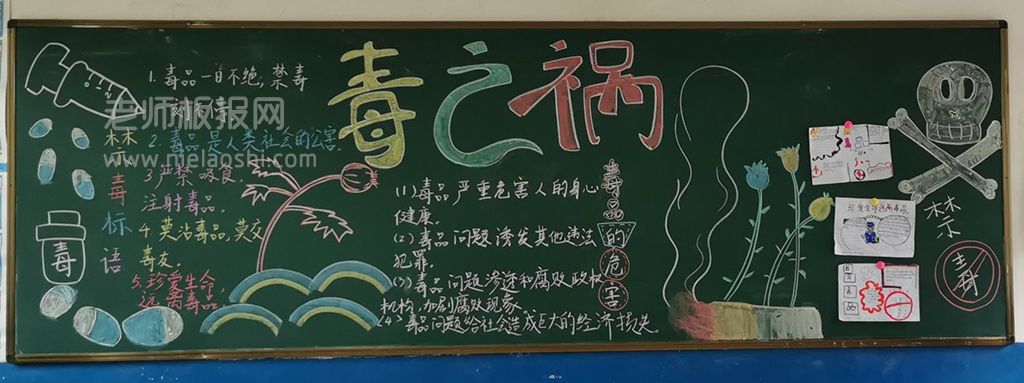 毒之祸
禁毒标语
1. 毒品一日不绝,禁毒
一刻不停
2. 毒品是人类社会的公害.
3. 严禁吸食.
注射毒品.
4. 莫沾毒品,莫交
毒友.
5. 珍爱生命
远离毒品.
老师报报网
www.nielaoshi.com
毒
毒品的危害
(1) 毒品严重危害人的身心
健康.
(2) 毒品问题诱发其他违法
犯罪.
(3) 毒品问题渗透和腐败政权
机构,加剧腐败现象
(4) 毒品问题给社会造成巨大的经济损失.
珍爱生命远离毒品.
禁
毒